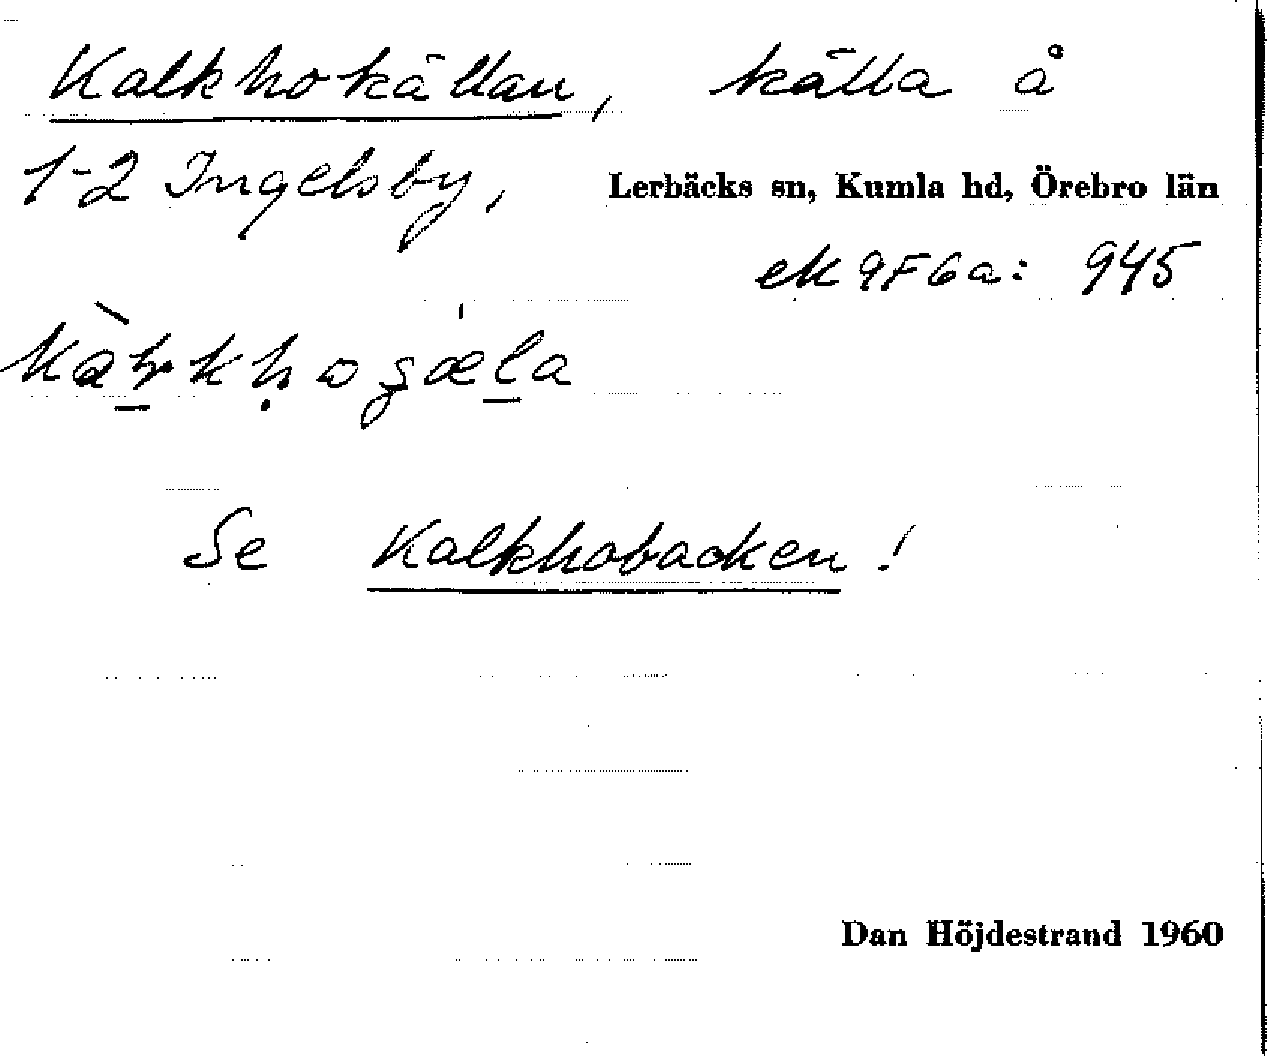 Kalkhokällan, källa å
1-2 Ingelsby, Lerbäcks sn, Kumla hd, Örebro län
ek 9F6a: 945
Se Kalkhobacken!
Dan Höjdestrand 1960